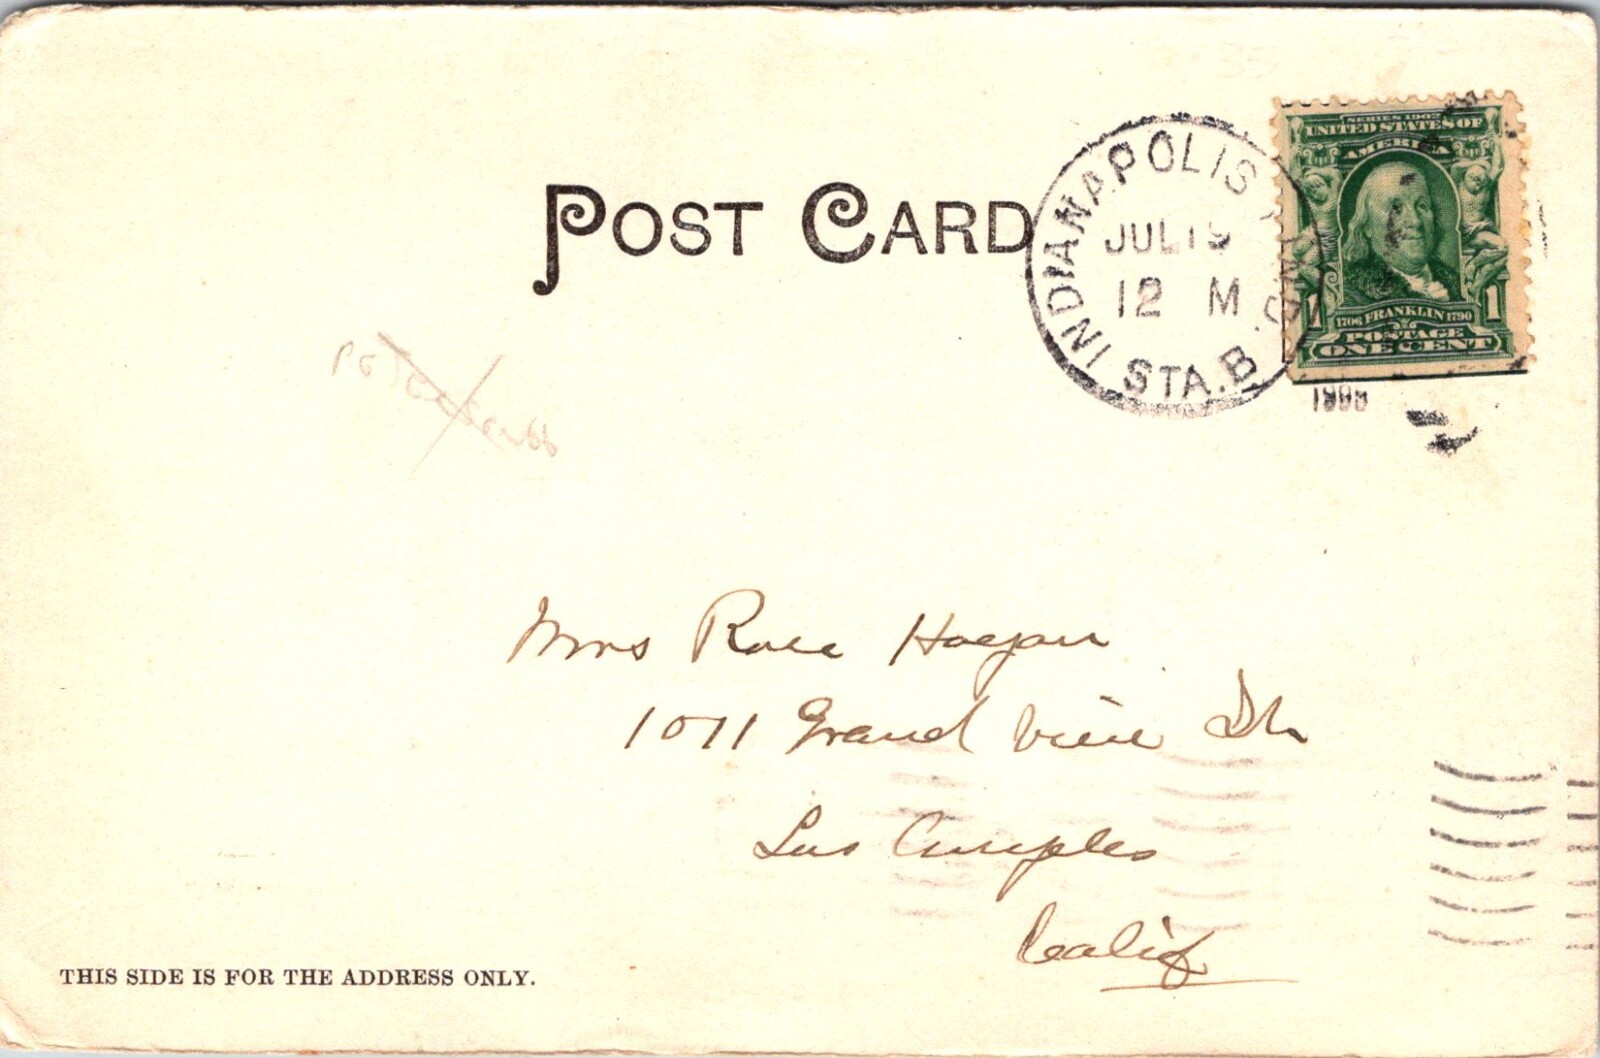 POST CARD
INDIANAPOLIS, IND.
JUL 19
12 M
STA. B.
SERIES 1902
UNITED STATES OF
AMERICA
1 1706 FRANKLIN 1790 1
POSTAGE
ONE CENT
Mrs Rose
1011 Grand View
Los Angeles
Calif
THIS SIDE IS FOR THE ADDRESS ONLY.